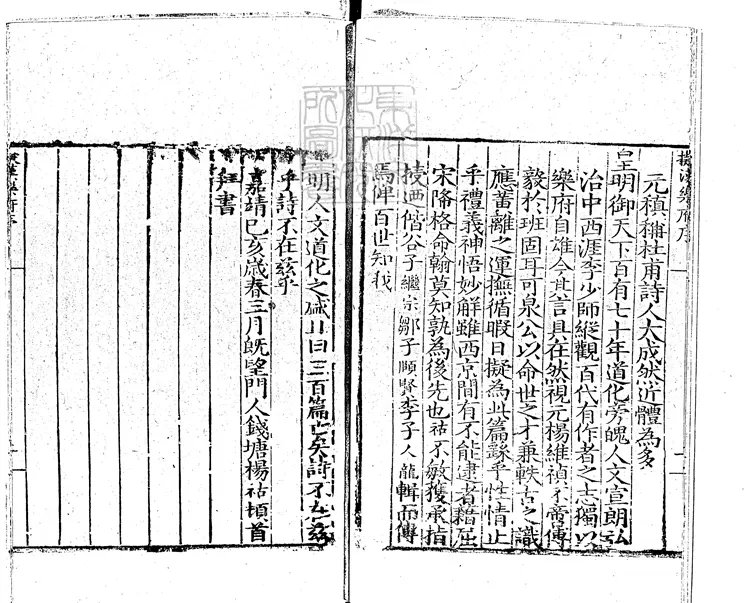 擬漢樂府序
元稹稱杜甫詩人大成然近體為多
皇明御天下百有七十年道化旁魄人文宣朗弘
治中西涯李少師縱觀百代有作者之志獨以
樂府自雄今其言具在然視元楊維禎不啻傅
毅於班固耳可泉公以命世之才兼軼古之識
應蓄離之運撫循暇日擬為此篇謌乎性情止
乎禮義神悟妙解雖西京間有不能逮者藉屈
宋降格命翰莫知孰為後先也祜不敏獲承指
授迺偕公子繼宗鄒子頤賢李子人龍輯而傳
焉俾百世知我
明人文道化之盛且曰三百篇亡矣詩不在茲
乎詩不在茲乎
嘉靖己亥歲春三月既望門人錢塘楊祜頓首
拜書